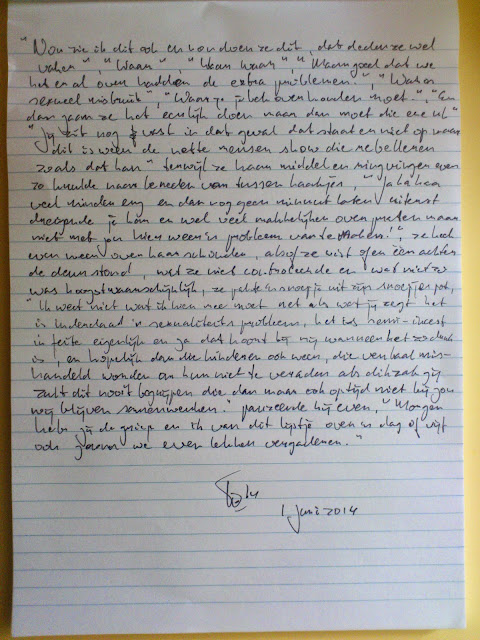 "Nou zie ik dit ook en hou doen ze dit, dat deden ze wel
vaker", "Waar", "Waar waar", "Maar goed dat we
het er al over hadden de extra problemen.", "Was er
sexueel misbruik", "Waar je je bek over houden moet.", "En
dan gaan ze het eerlijk doen maar dan moet die ene wel"
"Jij zit nog vast in dat geval dat staat er niet op maar
dit is weer de nette mensen show die rebelleren
zoals dat kan" terwijl ze haar middel en ringvinger even
zo krulde naar beneden van tussen haakjes, "Ja haha
veel minder eng en dan nog geen minuut later uiterst
dreigende je kan er wel veel makkelijker over praten maar
niet met jou hier weer 'n probleem van te maken!", ze keek
even weer over haar schouder, alsof ze wist of er één achter
de deur stond, wat ze niet controleerde en wat niet zo
was hoogstwaarschijnlijk, ze pakte snoepje uit zijn snoepjespot,
"Ik weet niet wat ik hier mee moet net als wat jij zegt het
is inderdaad 'n sexualiteits probleem, het is semi-incest
in feite eigenlijk en ja dat hoort bij mij wanneer het zo druk
is, en hopelijk dan de kinderen ook weer, die verbaal mis-
handeld worden om hun niet te verraden als dikzak jij
zult dit nooit begrijpen die dan maar ook altijd niet bij jou
mij blijven samenwerken." pauzeerde hij even, "Morgen
heb jij de griep en ik van dit lijstje over 'n dag of vijf
ook gaan we even lekker vergaderen."
1 juni 2014